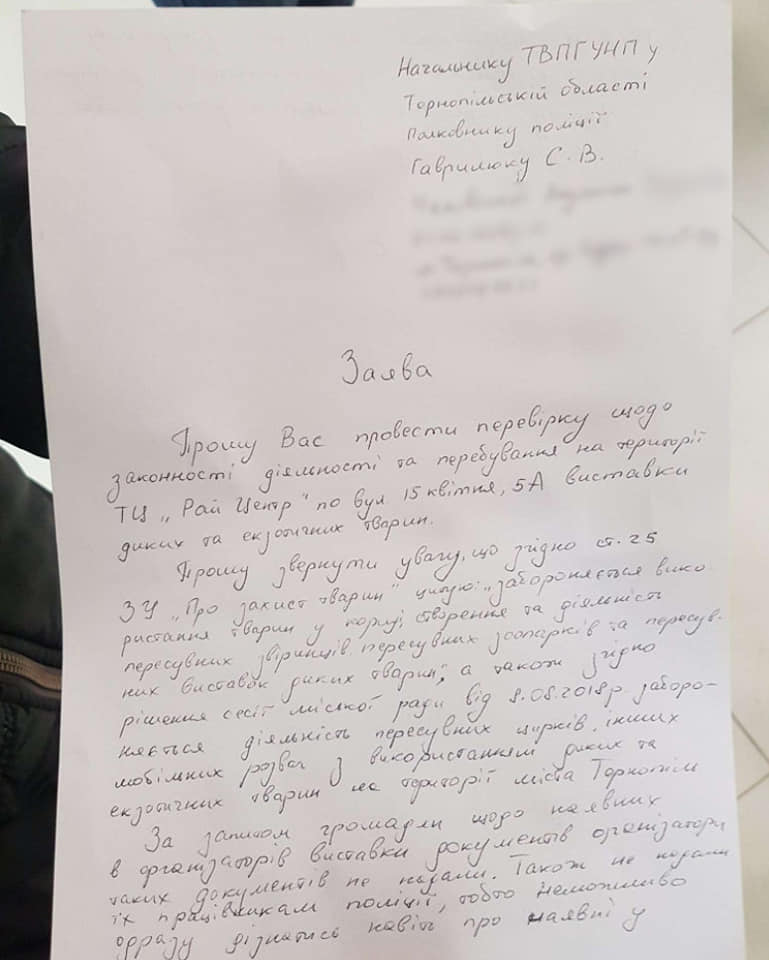 Начальнику ТВПГУНП у
Торнопільській області
Полковнику поліції
Гаврилюку С. В.
Заява
Прошу Вас провести перевірку щодо
законності діяльності та перебування на території
ТЦ „Рай Центр" по вул. 15 квітня, 5А виставки
диких та екзотичних тварин.
Прошу звернути увагу, що згідно ст. 25
ЗУ „Про захист тварин" цитую: „забороняється вико-
ристання тварин у кориді, створення та діяльність
пересувних звіринців, пересувних зоопарків та пересув-
них виставок диких тварин", а також згідно
рішення сесії міської ради від 8.08.2018р. заборо-
няється діяльність пересувних цирків, інших
мобільних розваг з використанням диких та
екзотичних тварин на території міста Тернопіль
За запитом громадян щодо наявних
в організаторів виставки документів організатори
таких документів не надали. Також не надали
їх працівникам поліції, тобто неможливо
одразу дізнатись навіть про наявні у